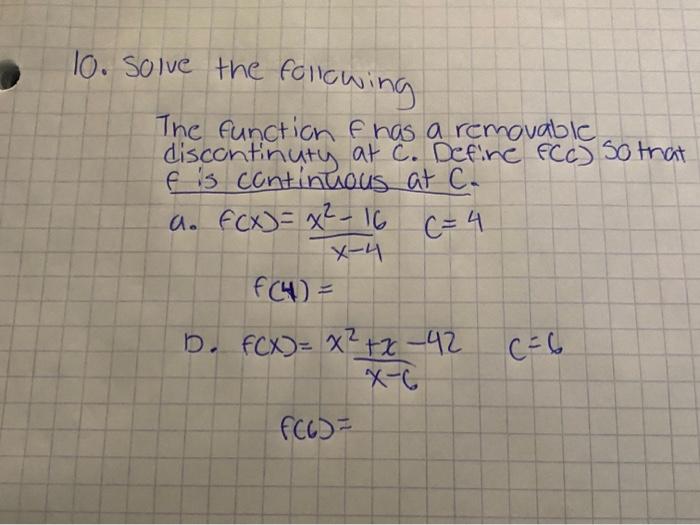 10. Solve the following
The function f has a removable
discontinuty at C. Define f(c) so that
f is continuous at C.
a. f(x) = x² - 16 C = 4
x-4
f(4) =
D. f(x) = x² + x - 42 C = 6
x-6
f(6) =